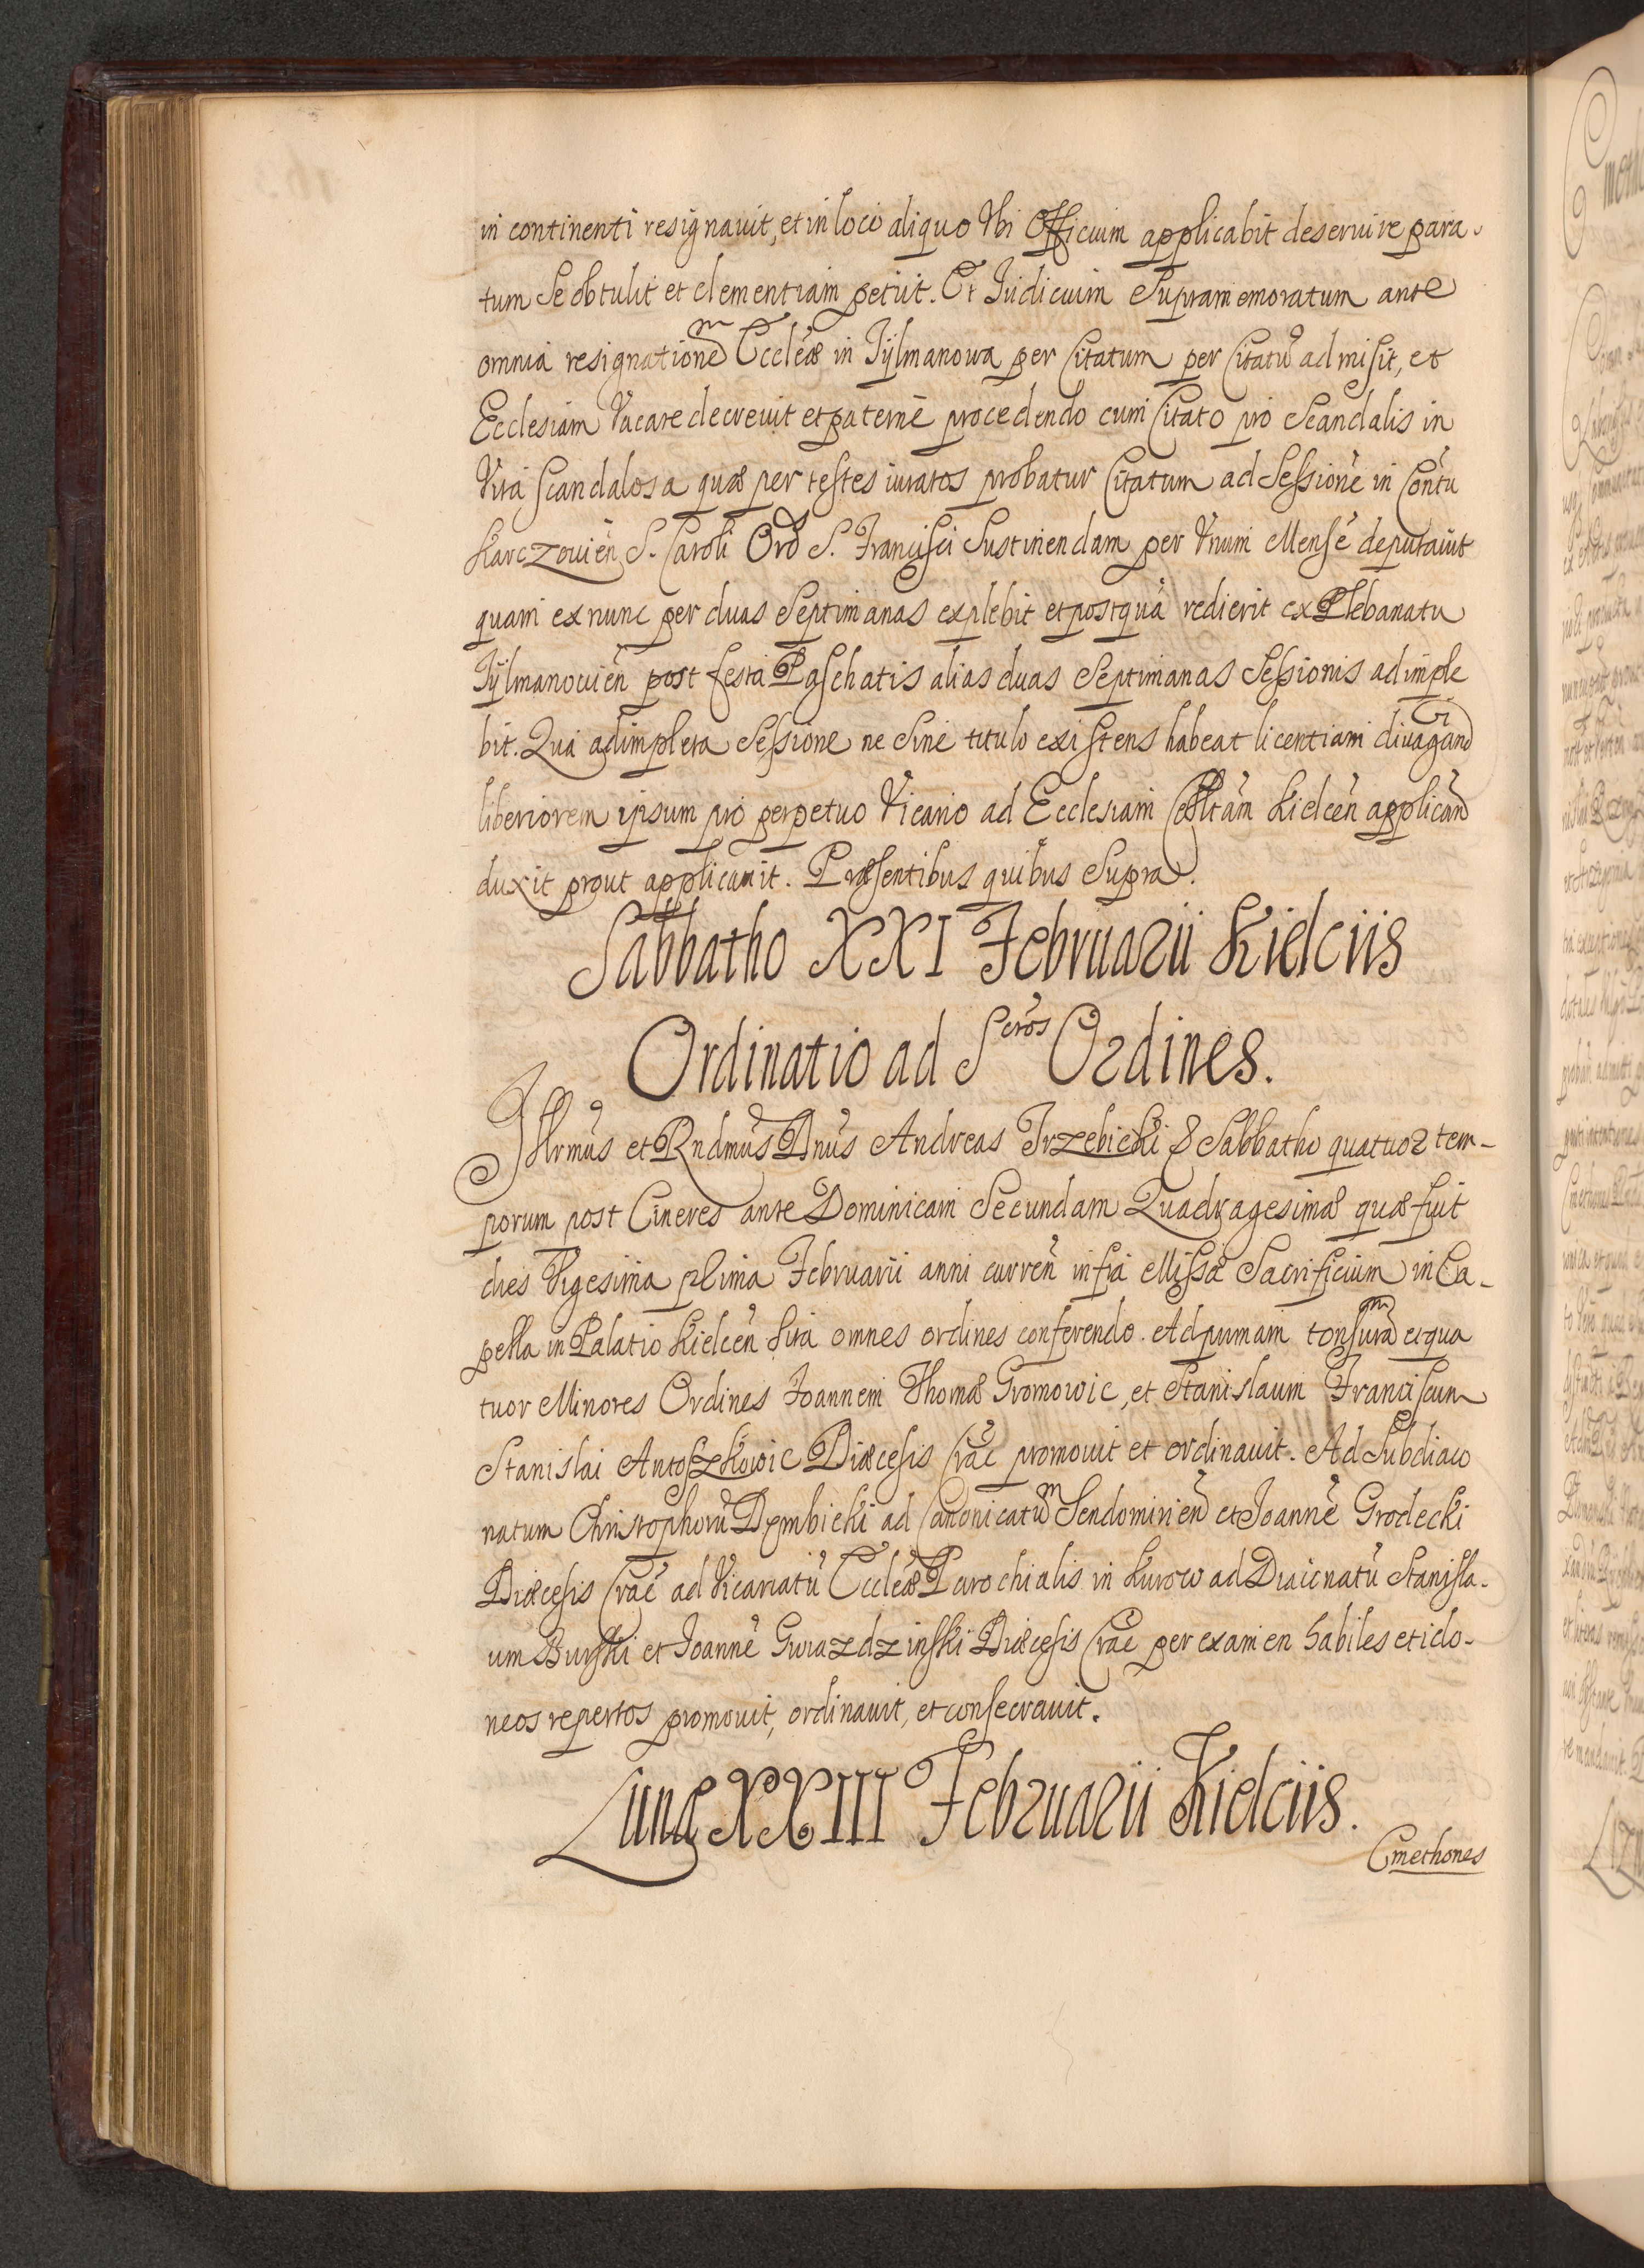 in continenti resignauit, et in loco aliquo Vbi Officium applicabit deseruire para-
tum Se obtulit et clementiam petiit. Et Iudicium Supramemoratum ante
omnia resignationẽm Eccleæ in Tÿlmanowa per Citatum per Citatũ admisit, et
Ecclesiam Vacare decreuit et paterne procedendo cum Citato pro Scandalis in
Vita scandalosa quæ per testes iuratos probatur Citatum ad Sessionẽ in Contũ
Karczouieñ S. Caroli Ord S. Francisci Sustinendam per Vnum Mensẽ deputauit
quam ex nunc per duas Septimanas explebit et postquã redierit ex Plebanatu
Tÿlmanouieñ post festa Paschatis alias duas Septimanas Sessionis adimple
bit. Qua adimpleta Sessione ne Sine titulo existens habeat licentiam diuagand
liberiorem ipsum pro perpetuo Vicario ad Ecclesiam Colltam Kielceñ applicand
duxit prout applicauit. Præsentibus quibus Supra.
Sabbatho XXI Februarii Kielciis
Ordinatio ad Scros Ordines.
Illrmus et Rndmus Dnus Andreas Trzebicki & Sabbatho quatuor tem-
porum post Cineres ante Dominicam Secundam Quadragesimæ quæ fuit
dies Vigesima prima Februarii anni curreñ infra Missæ Sacrificium in Ca-
pella in Palatio Kielceñ Sita omnes ordines conferendo. Ad primam tonsuram et qua
tuor Minores Ordines Ioannem Thomæ Gromowic, et Stanislaum Franciscum
Stanislai Antoszkowic Diæcesis Crac promouit et ordinauit. Ad Subdiaco
natum Christophorũ Dembicki ad Canonicatũm Sendomirieñ et Ioannẽ Grodecki
Diæcesis Crac ad Vicariatũ Eccleæ Parochialis in Kurow ad Diacnatũ Stanisla-
um Burski et Ioannẽ Gwiazdzinski Diæcesis Crac per examen habiles et ido-
neos repertos promouit, ordinauit, et consecrauit.
Lunæ XXIII Februarii Kielciis.
Cmethones